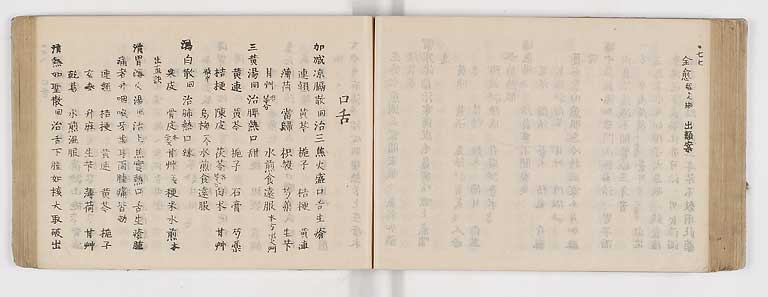 全愈
出類案
口舌
加減凉膈散 回 治三焦火盛口舌生瘡
連翹 黄芩 梔子 桔梗 黄連
薄荷 當歸 枳殻 芍藥 生芐
甘艸 水煎食遠服
三黄湯 回 治脾熱口甜
黄連 黄芩 梔子 石膏 芍藥
桔梗 陳皮 茯苓 白朮 甘艸
烏梅 水煎食遠服
瀉白散 回 治肺熱口辣
桑皮 骨皮 甘艸 粳米 水煎
清胃瀉火湯 回 治上焦實熱口舌生瘡腫
痛者并咽喉牙耳面腫痛皆効
連翹 桔梗 黄連 黄芩 梔子
玄参 升麻 生芐 薄荷 甘艸
乾葛 水煎温服
清熱如聖散 回 治舌下腫如核大取破出